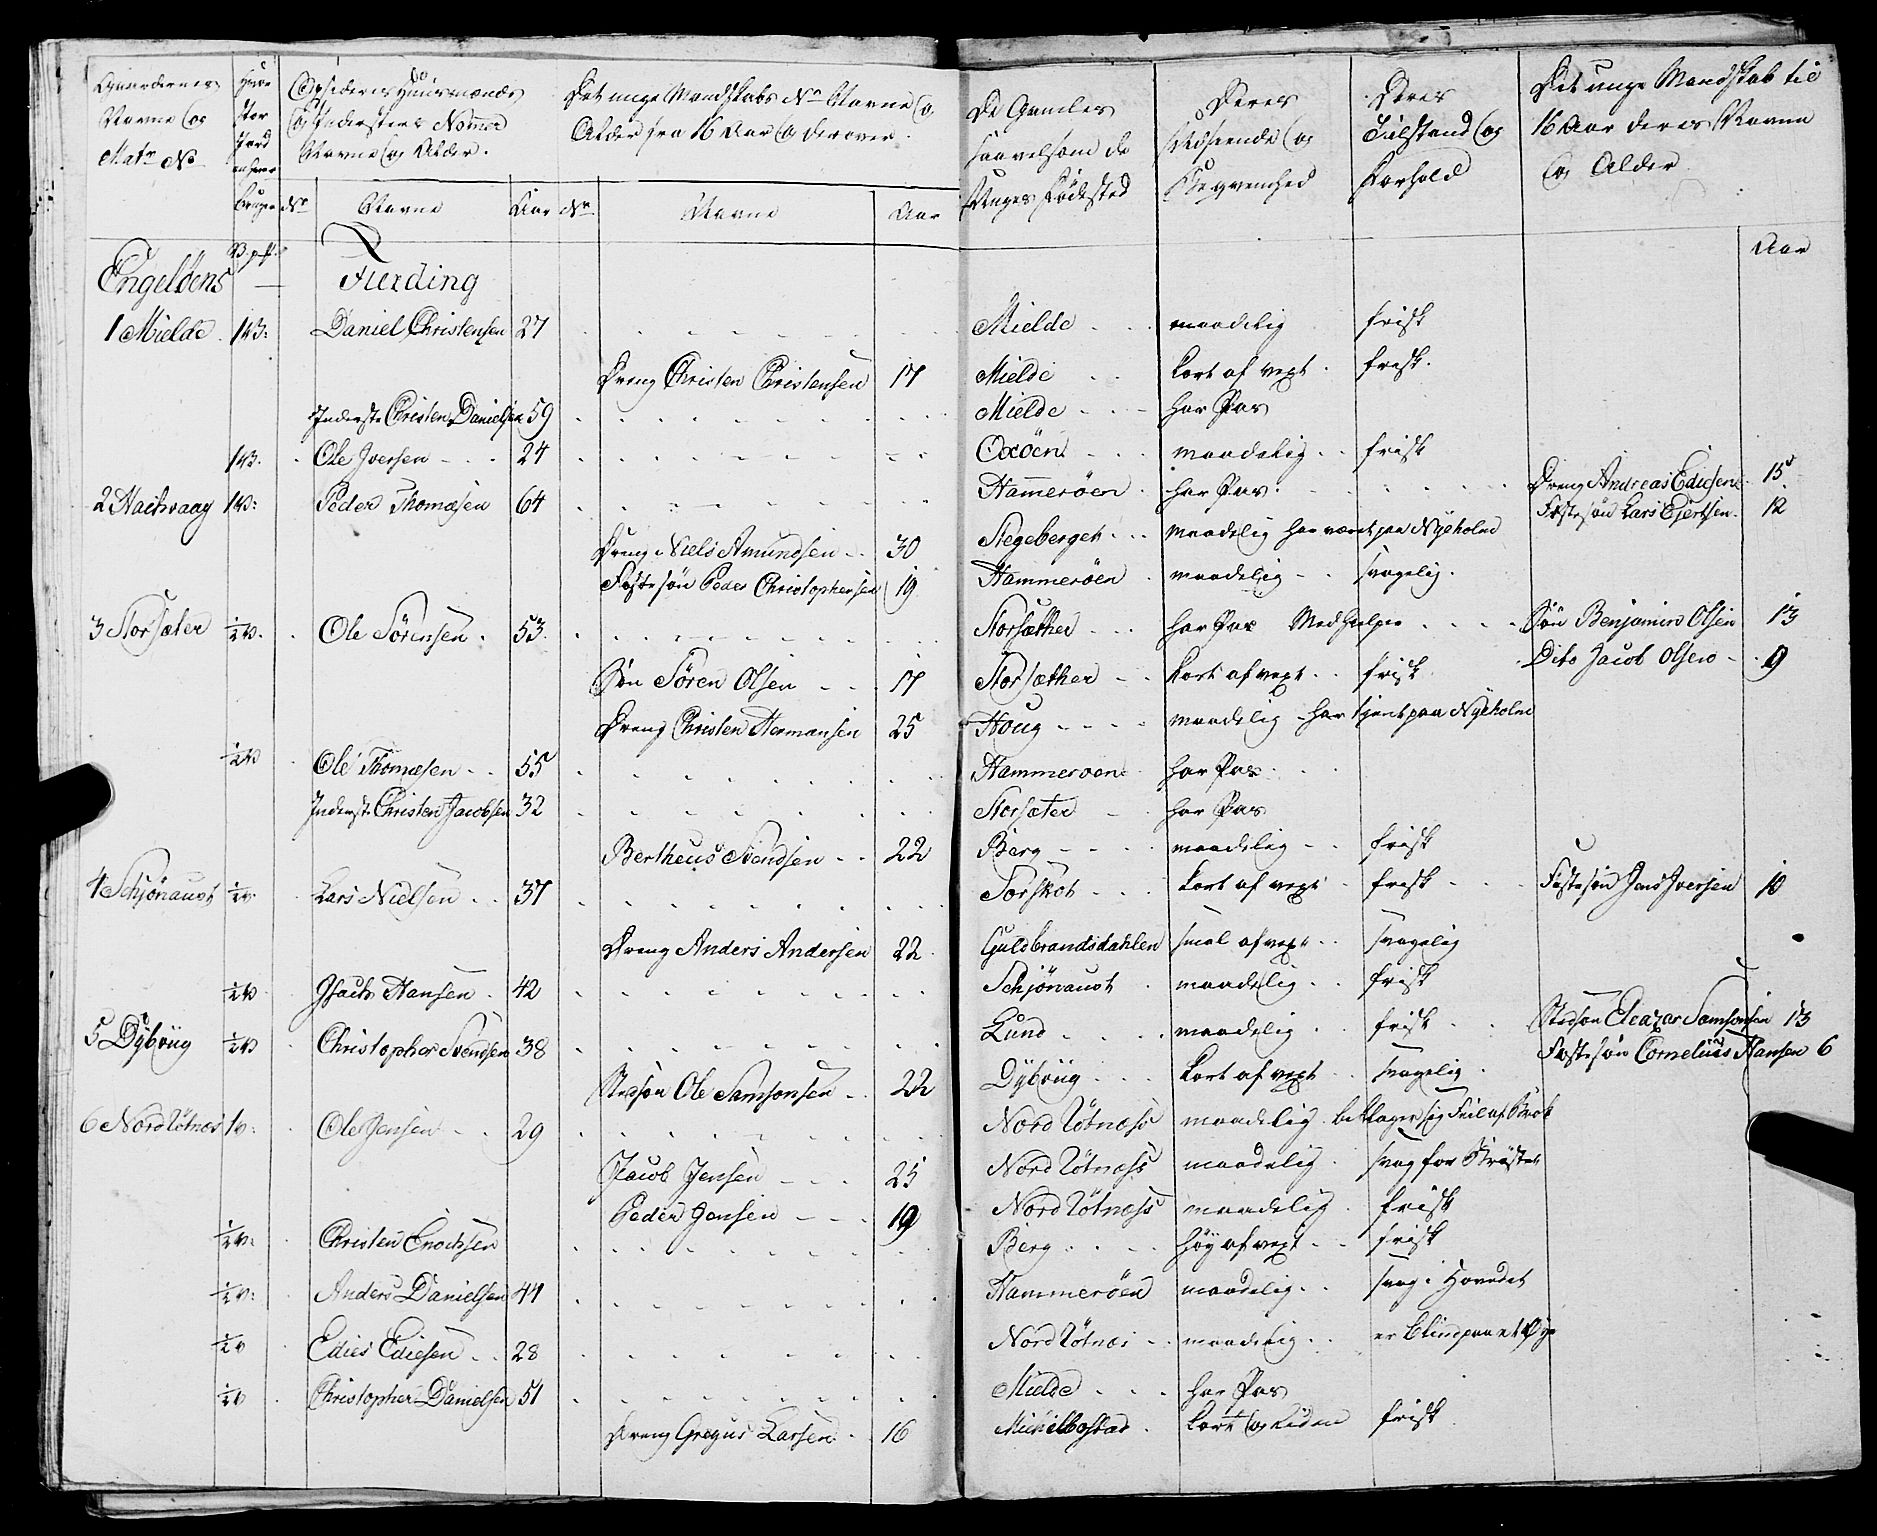 Gaardernes Navne og Matr No
Hvor stor Jord enhver bruger
Opsidderes Huusmænds og Inderstes Nommer Navne og Alder.
Det unge Mandskabs No Navne og Alder fra 16 Aar og derover.
De Gamles saavelsom de Unges Fødested
Deres Udseende og Begvemhed
Deres Tilstand og Forhold
Det unge Mandskab til 16 Aar deres Navne og Alder
No Navne Aar No Navne Aar
Aar
Engeløens Fierding
1 Mielde 1 V: Daniel Christensen 27 Mielde maadelig frisk
Dreng Christen Christensen 17 Mielde kort af vext frisk.
Inderste Christen Danielsen 59 Mielde har Pas
1 V. Ole Iversen 24 Oxöen maadelig frisk
2 Hachvaag 1 V: Peder Thomæsen 64 Hammeröen har Pas. Dreng Andreas Ediesen 15
Fostersön Lars Ejertsen 12
Dreng Niels Amundsen 30 Stegeberget maadelig har været paa Nyeholm
Fostersön Peder Christophersen 19 Hammeröen maadelig svagelig.
3 Storsæter ½ V. Ole Sörensen 53 Storsæther har Pas Medhielper Sön Benjamin Olsen 13
Dito Jacob Olsen 9
Sön Sören Olsen 17 Storsæther kort af vext frisk
Dreng Christen Hermansen 25 Houg maadelig har tjent paa Nyeholm
½ V Ole Thomæsen 55 Hammeroen har Pas
Inderst Christen Jacobsen 32 Storsæter har Pas
Bertheus Svendsen 22 Berg maadelig frisk
4 Schjönaust ½ V Lars Nielsen 37 Torskot kort af vext frisk Fostersön Jens Iversen 10
Dreng Anders Andersen 22 Guldbrandsdahlen smal af vext svagelig
½ V Isach Hansen 42 Schjönaust maadelig frisk
5 Dybvüg ½ V Christopher Svendsen 38 Lund maadelig frisk Stedsön Eleazar Samsonsen 13
Fostersön Cornelius Hansen 6
Stedsön Ole Samsonsen 22 Dybvüg kort af vext svagelig
6 Nord Lötnæs 1 V: Ole Jensen 29 Nord Lötnæss maadelig beklager sig Feil af Brok
Jacob Jensen 25 Nord Lötnæss maadelig svag for Brystet
Peder Jensen 19 Nord Lötnæss maadelig frisk
½ V: Christen Enochsen Berg høy af vext frisk
½ V: Anders Danielsen 44 Hammeröen maadelig svag i Hovedet
½ V Edies Ediesen 28 Nord Lötnæs maadelig er blind paa et Øye
½ V Christopher Danielsen 51 Mielde har Pas
Dreng Gregus Larsen 16 Michelbostad kort og liden frisk